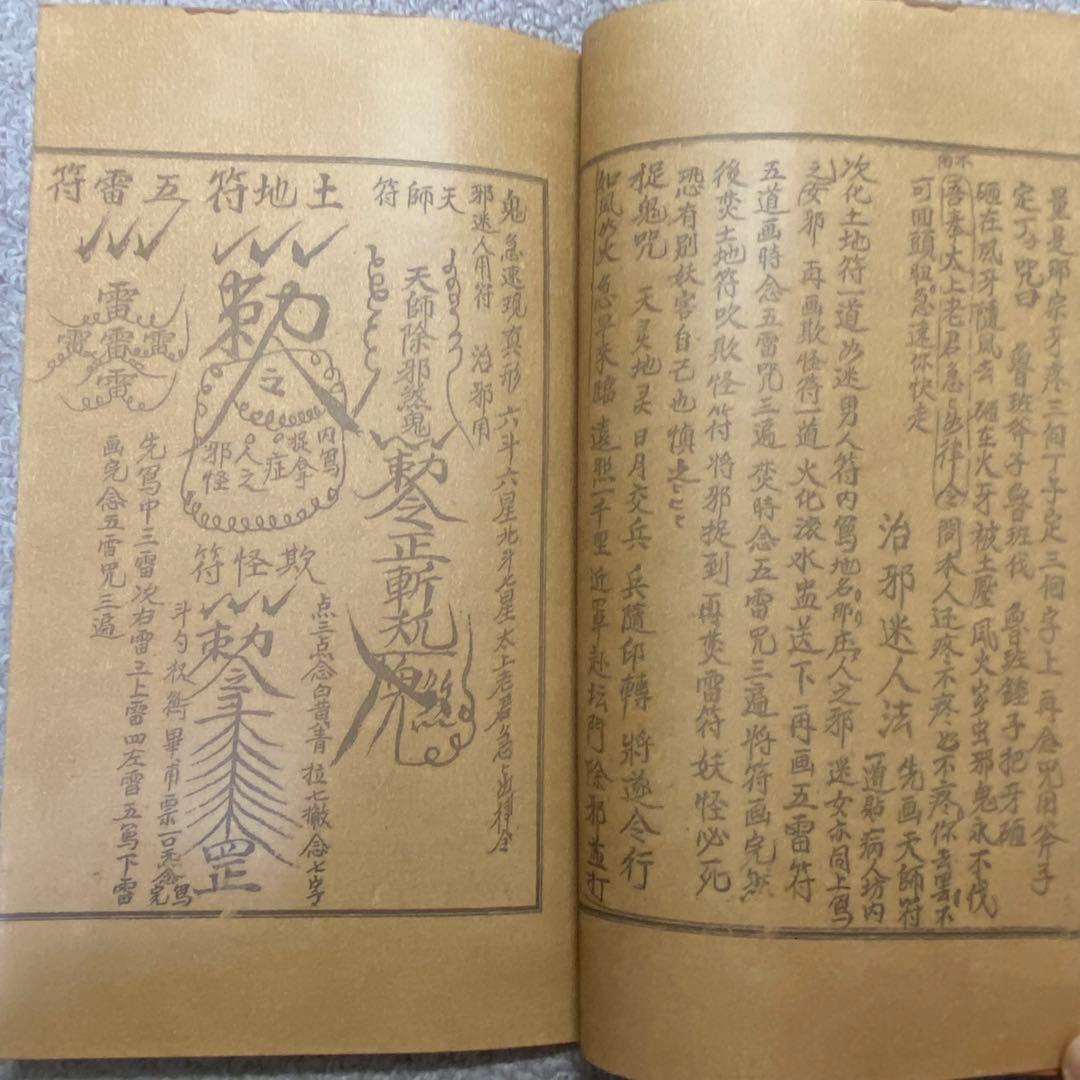 量是那宗牙疼三间丁子定三個字上再念咒用斧子
定丁咒曰 魯班斧子魯班伐 魯班錘子把牙砸
砸在风牙隨风去 砸在火牙被土壓 风火字虫邪鬼永不伐
吾奉太上老君急急如律令 問本人还疼不疼也不疼你去罢不
可回頭狙急速你快走
治邪迷人法 先画天師符
一道貼病人坊内
次化土地符一道如迷男人符内写地名那庄人之邪 迷女亦同上写
之女邪 再画欺怪符一道 火化滚水盅送下 再画五雷符
五道画時念五雷咒三遍 焚時念五雷咒三遍將符画完然
後焚土地符吹欺怪符將邪捉到 再焚雷符 妖怪必死
恐有别妖客自己也慎之之
捉鬼咒 天灵地灵 日月交兵 兵隨印轉 將遂令行
如风如火 急早来臨 遠照一千里 近罩赴坛門 除邪並打
鬼 急速現真形 六斗六星北斗七星太上老君急急如律令
邪迷人用符 治邪用
天師符
天師除邪煞鬼
勅令正斬
土地符
勅
之
内写
捉拿
症
人之
邪怪
欺怪符
勅令
罡
点三点念白黄青 拉七撇念七字
斗勺权衡畢甫票
五雷符
雷
雷雷雷
雷
先写中三雷次右雷二上雷四左雷五写下雷
画完念五雷咒三遍